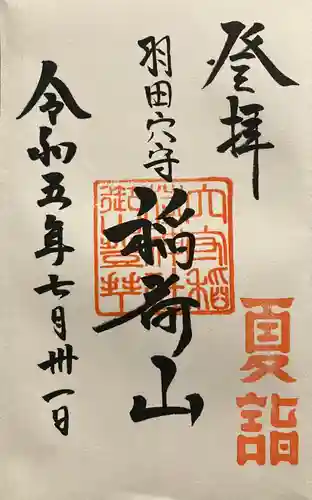 登拝
羽田穴守
稲荷山
夏詣
令和五年七月卅一日